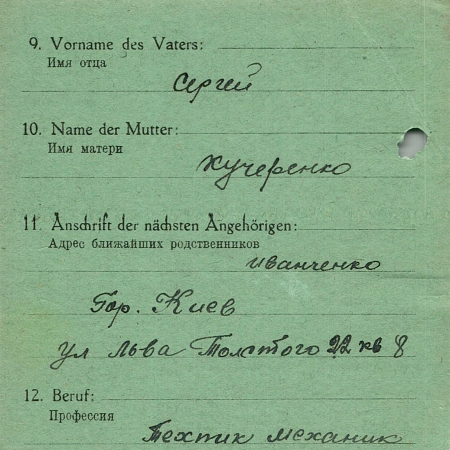 9. Vorname des Vaters:
Имя отца
Сергей
10. Name der Mutter:
Имя матери
Кучеренко
11. Anschrift der nächsten Angehörigen:
Адрес ближайших родственников
Иванченко
Гор. Киев
ул Льва Толстого 22 кв 8
12. Beruf:
Профессия
Техник механик